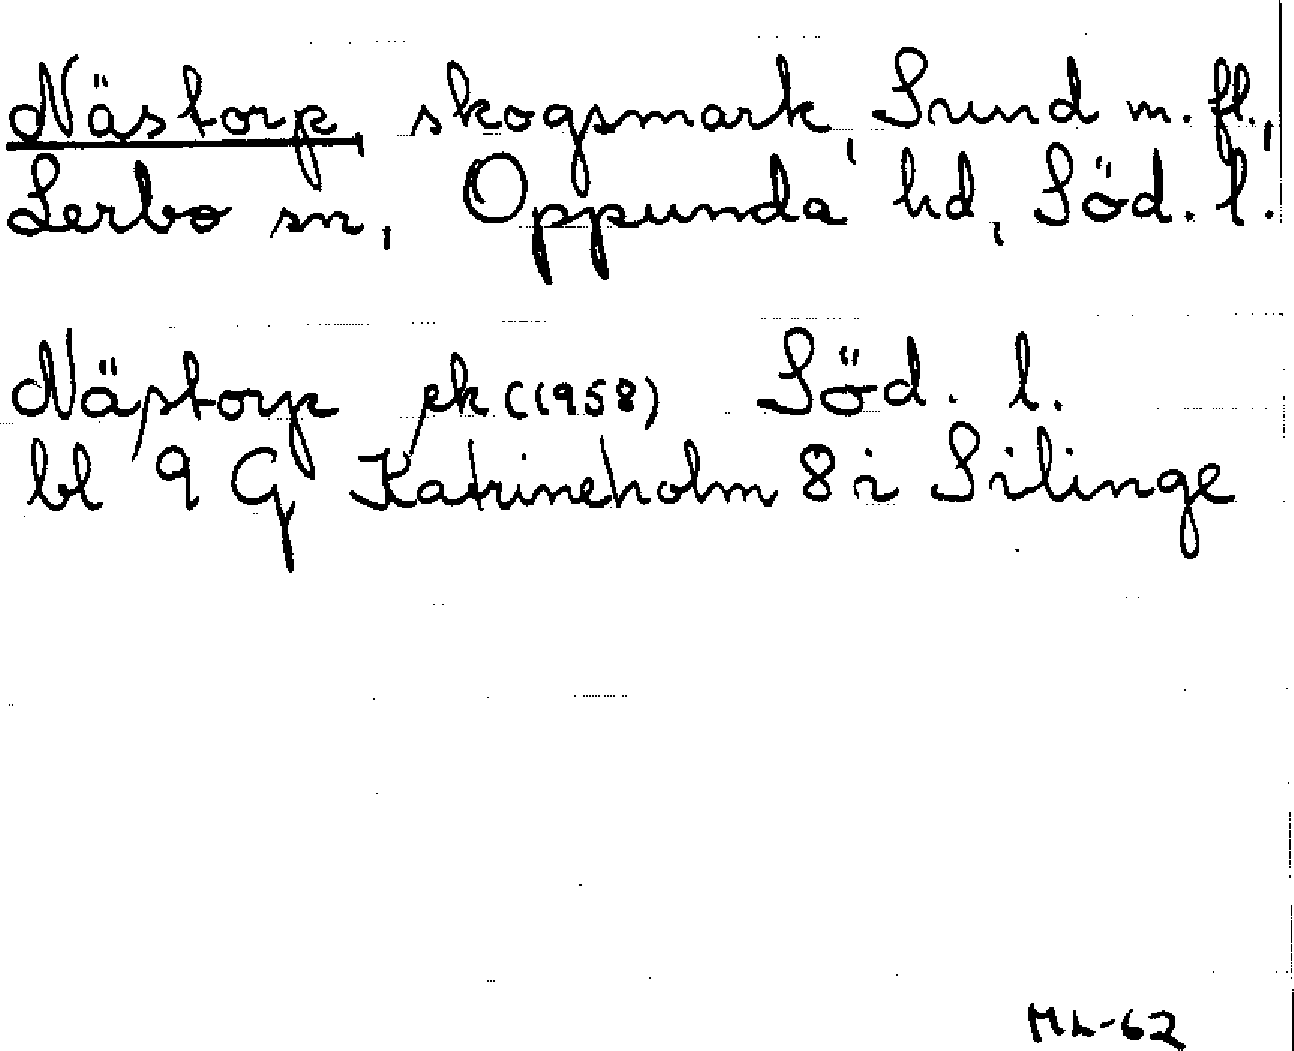 Nästorp, skogsmark, Sund m. fl.,
Lerbo sn, Oppunda hd, Söd. l.
Nästorp ek (1958) Söd. l.
bl 9 G Katrineholm 8 i Silinge
ML-62